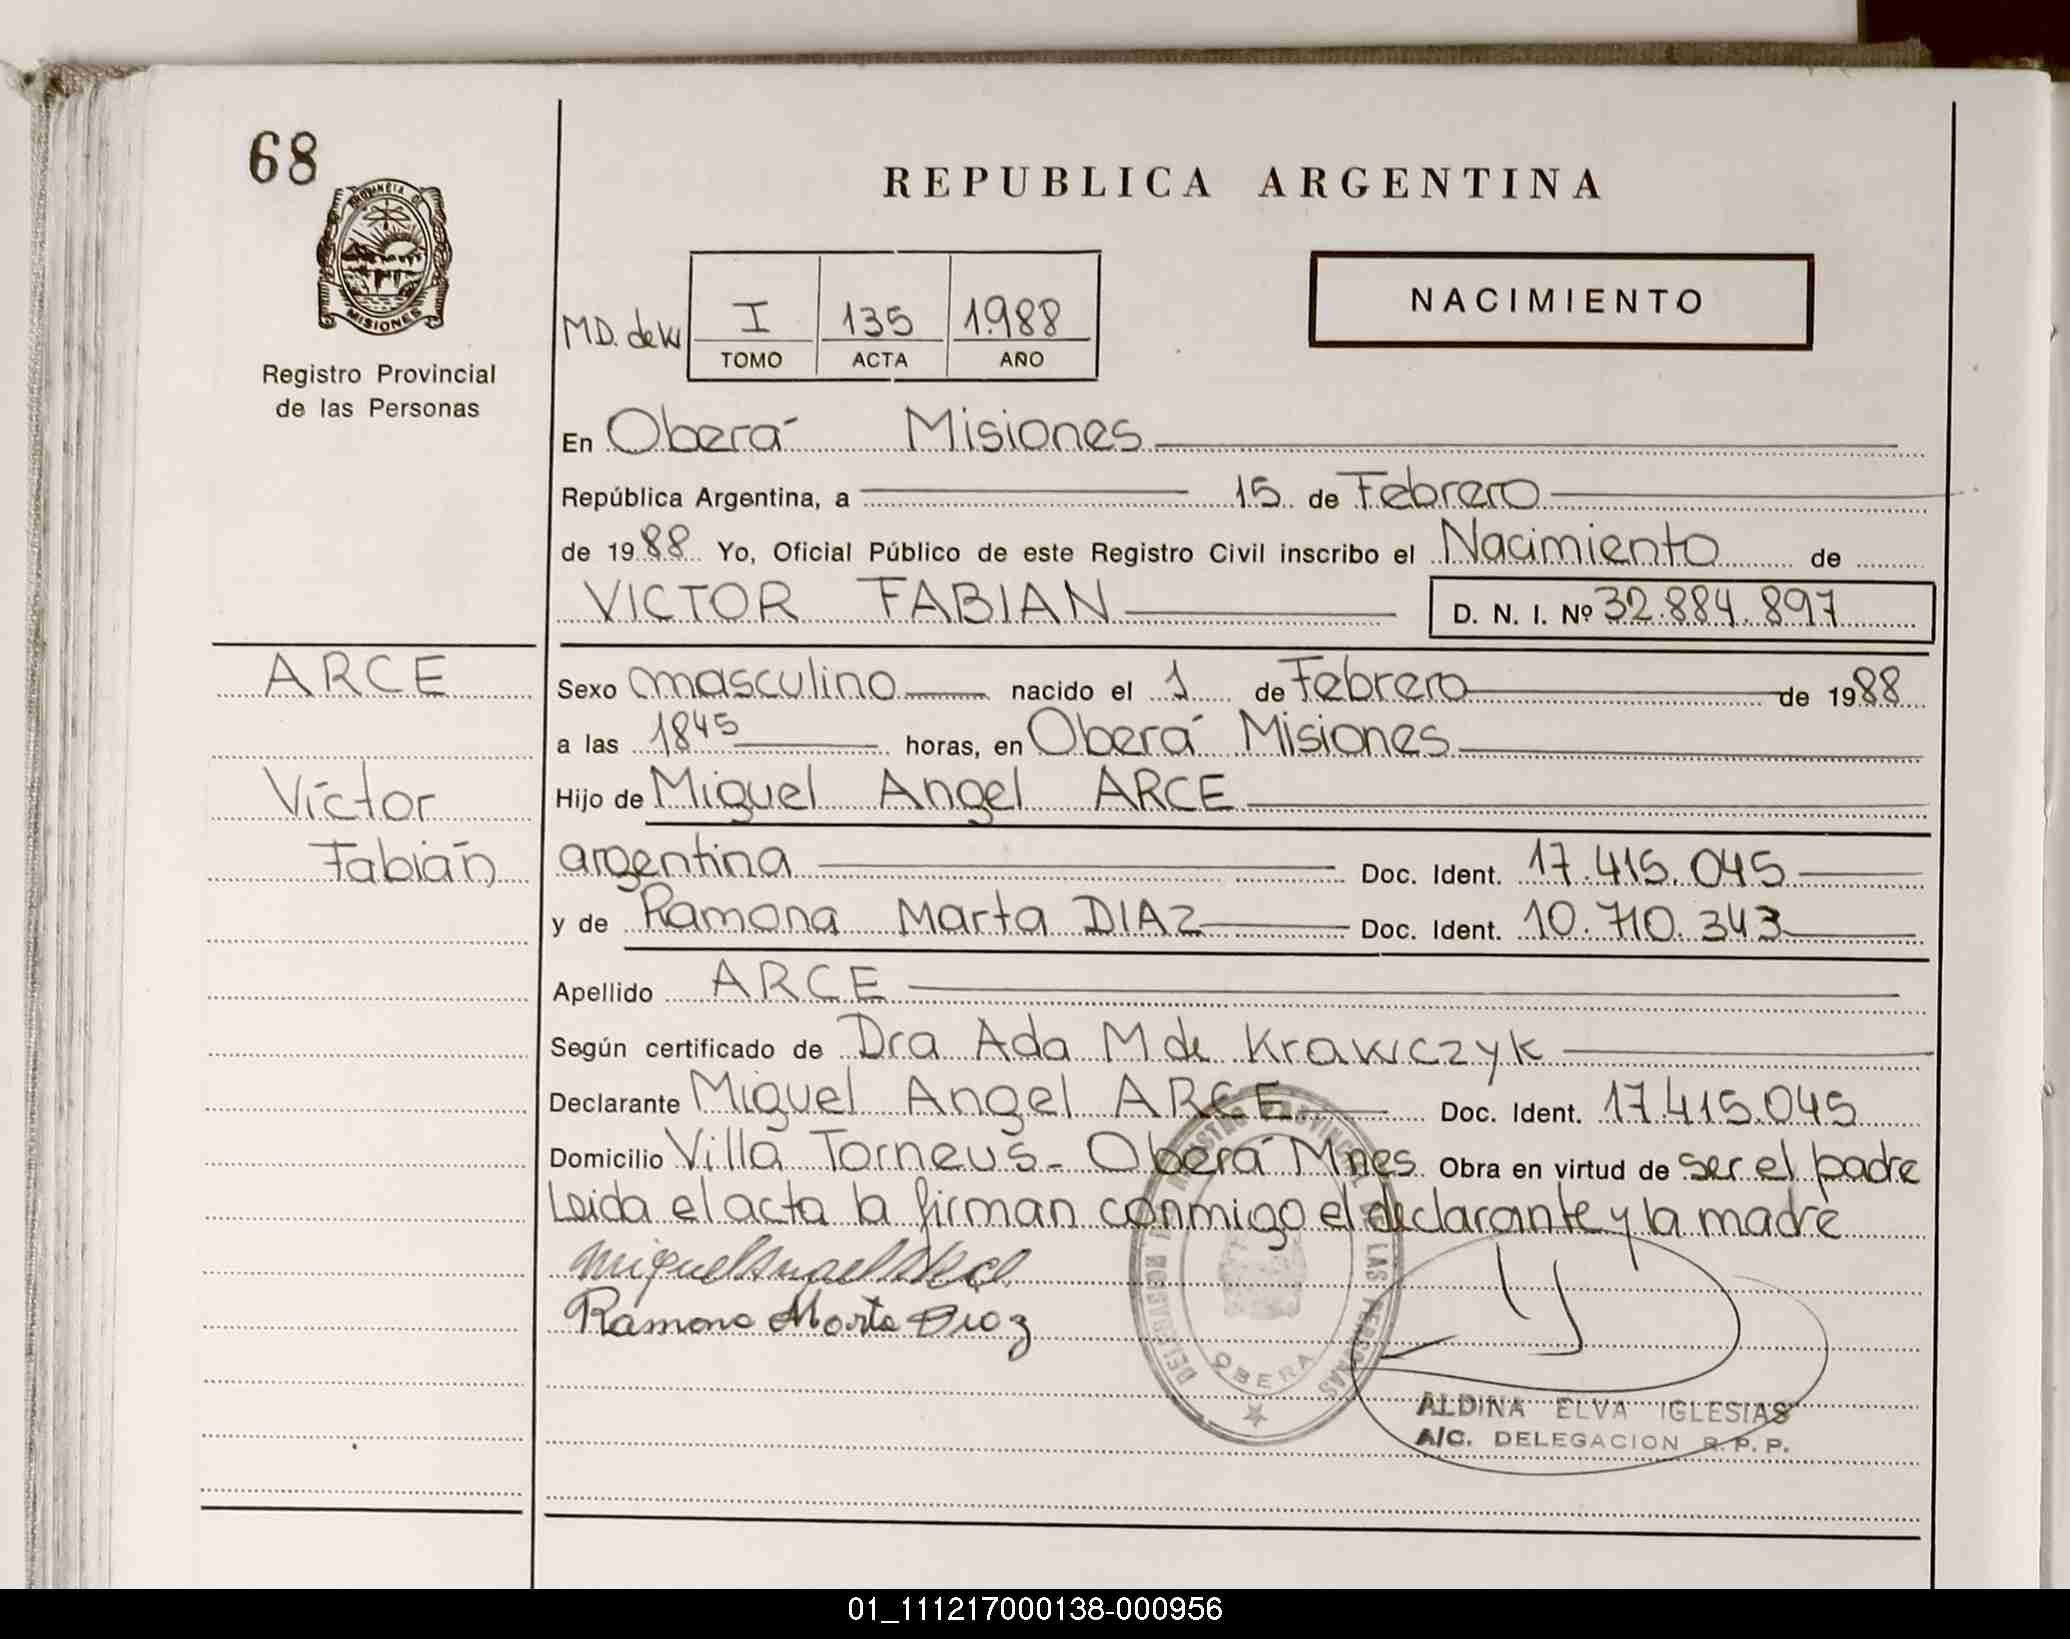 68
REPUBLICA ARGENTINA
PROVINCIA DE
MISIONES
Registro Provincial
de las Personas
NACIMIENTO
MD. de W
I 135 1988
TOMO ACTA AÑO
En Oberá Misiones
República Argentina, a 15 de Febrero
de 1988 Yo, Oficial Público de este Registro Civil inscribo el Nacimiento de
VICTOR FABIAN D. N. I. Nº 32.884.897
ARCE
Víctor
Fabián
Sexo masculino nacido el 1 de Febrero de 1988
a las 1845 horas, en Oberá Misiones
Hijo de Miguel Angel ARCE
argentina Doc. Ident. 17.415.045
y de Ramona Marta DIAZ Doc. Ident. 10.710.343
Apellido ARCE
Según certificado de Dra Ada M de Krawczyk
Declarante Miguel Angel ARCE Doc. Ident. 17.415.045
Domicilio Villa Torneus - Oberá Mnes Obra en virtud de ser el padre
Leida el acta la firman conmigo el declarante y la madre
Miguel Angel Arce
Ramona Marta Diaz
REGISTRO PROVINCIAL DE LAS PERSONAS
OBERA
ALDINA ELVA IGLESIAS
A/C. DELEGACION R. P. P.
01_111217000138-000956